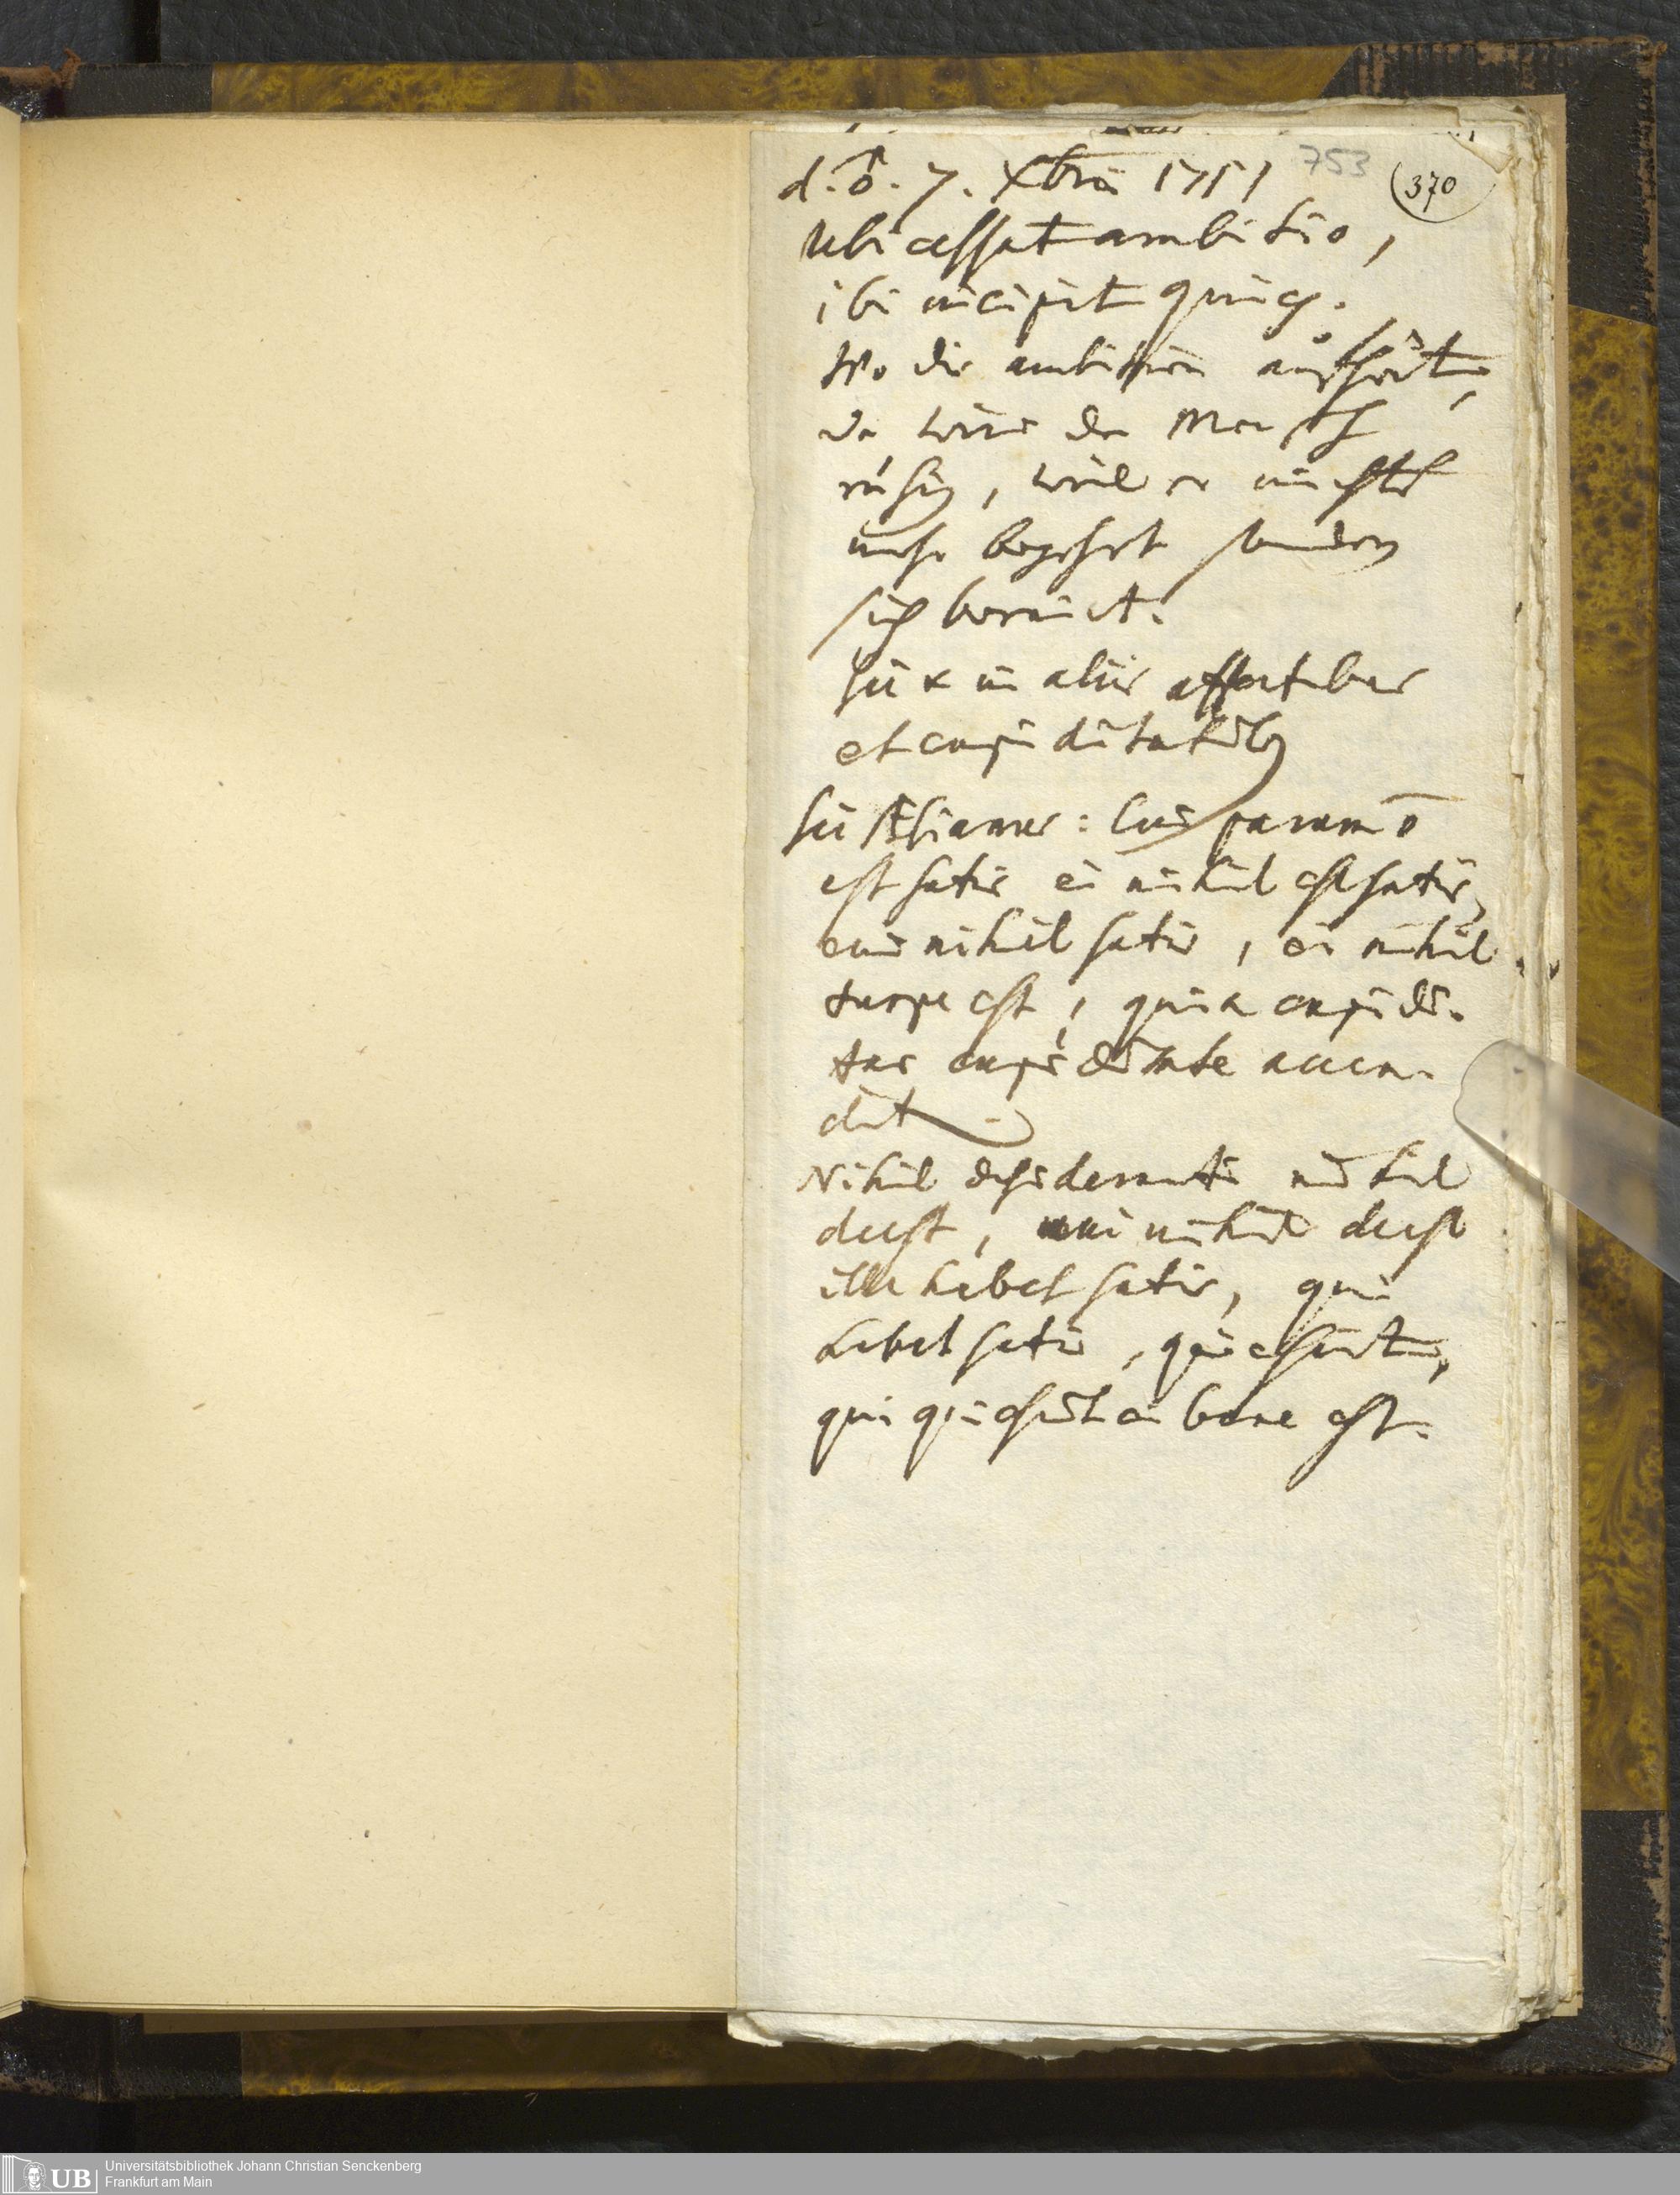 753
(370
d. ♂. 7. Xbris 1751
Ubi cessat ambitio,
ibi incipit quies.
Wo die ambition aufhört,
da wird der Mensch
ruhig, weil er nichts
mehr begehrt sondern
sich
sic & in aliis affectibus
et cupiditatibus
sic : Cui parum ō
est satis ei nihil est satis,
cui nihil satis, ei nihil
turpe est, quia cupidi-
tas cupiditate accen-
dit
Nihil desideranti nihil
deest, cui nihil deest
ille habet satis, qui
habet satis, quiescit,
qui quiescit ei bene est.
UB
Universitätsbibliothek Johann Christian Senckenberg
Frankfurt am Main